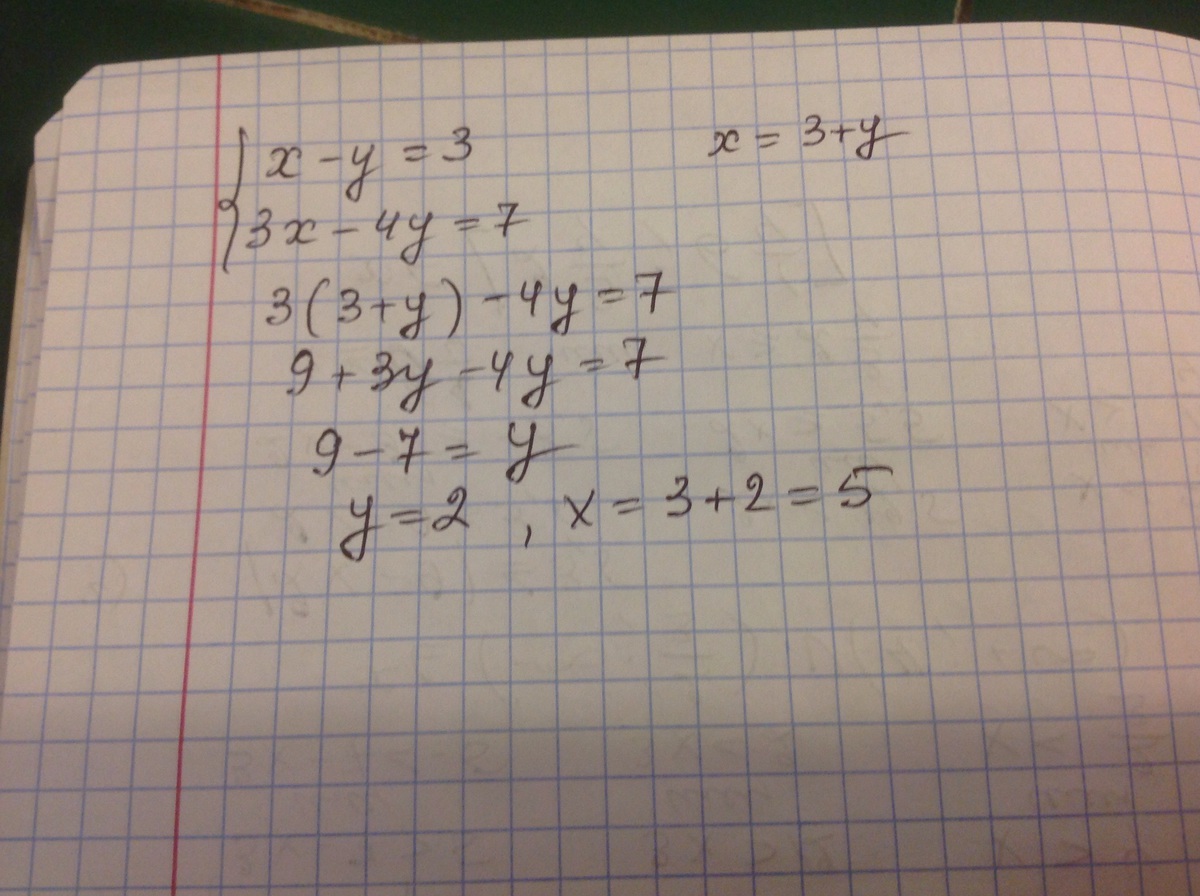 x - y = 3 x = 3 + y
3x - 4y = 7
3(3 + y) - 4y = 7
9 + 3y - 4y = 7
9 - 7 = y
y = 2 , x = 3 + 2 = 5